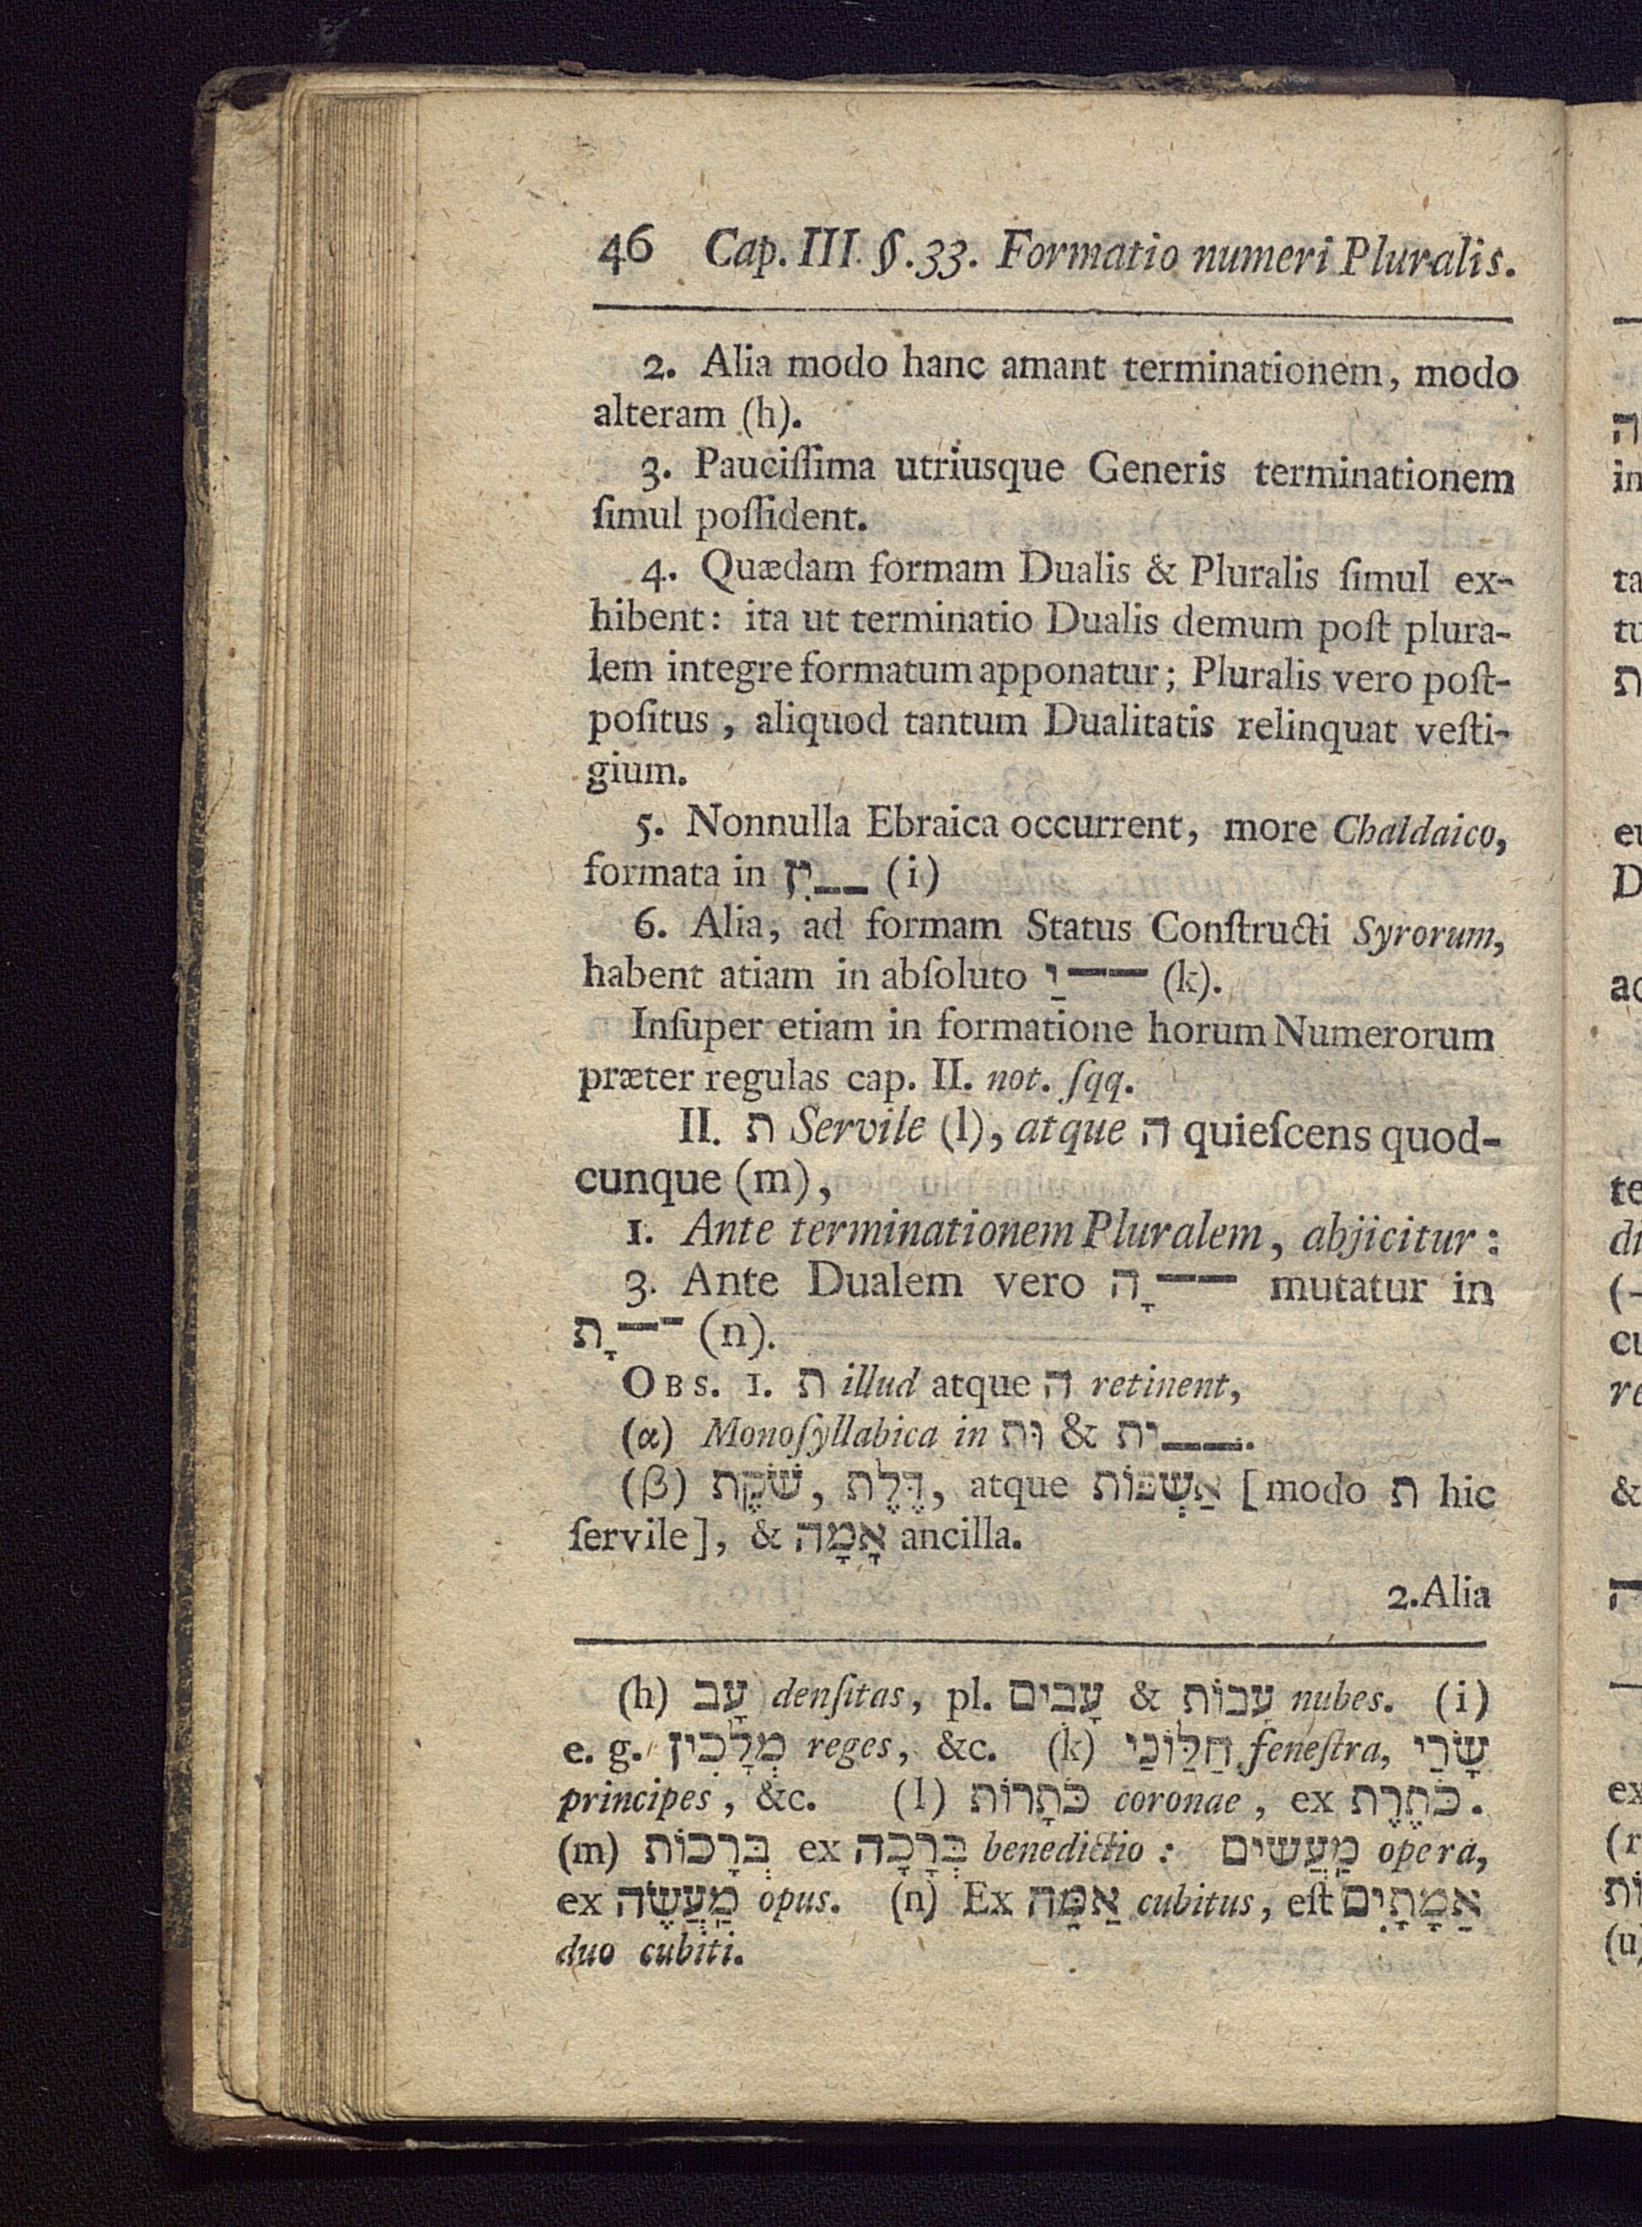 46 Cap. III. §. 33. Formatio numeri Pluralis.
2. Alia modo hanc amant terminationem, modo
alteram (h).
3. Pauciſſima utriusque Generis terminationem
ſimul poſſident.
4. Quædam formam Dualis & Pluralis ſimul ex-
hibent: ita ut terminatio Dualis demum poſt plura-
lem integre formatum apponatur; Pluralis vero poſt-
poſitus, aliquod tantum Dualitatis relinquat veſti-
gium.
5. Nonnulla Ebraica occurrent, more Chaldaico,
formata in יִן__ (i)
6. Alia, ad formam Status Conſtructi Syrorum,
habent atiam in abſoluto יַ—— (k).
Inſuper etiam in formatione horum Numerorum
præter regulas cap. II. not. ſqq.
II. ת Servile (l), atque ה quieſcens quod-
cunque (m),
1. Ante terminationem Pluralem, abjicitur:
3. Ante Dualem vero ָה—— mutatur in
ָת—— (n).
OBS. 1. ת illud atque ה retinent,
(α) Monoſyllabica in וּת & ית__.
(β) שֹׁקֶת, דֶּלֶת, atque אַשְׁפּוֹת [modo ת hic
ſervile], & אָמָה ancilla.
2. Alia
(h) עָב denſitas, pl. עָבִים & עָבוֹת nubes. (i)
e. g. מְלָכִין reges, &c. (k) חַלּוֹנַי feneſtra, שָׂרַי
principes, &c. (l) כֹּתָרוֹת coronae, ex כֹּתֶרֶת.
(m) בְּרָכוֹת ex בְּרָכָה benedictio: מַעֲשִׂים opera,
ex מַעֲשֶׂה opus. (n) Ex אַמָּה cubitus, eſt אַמָתָיִם
duo cubiti.